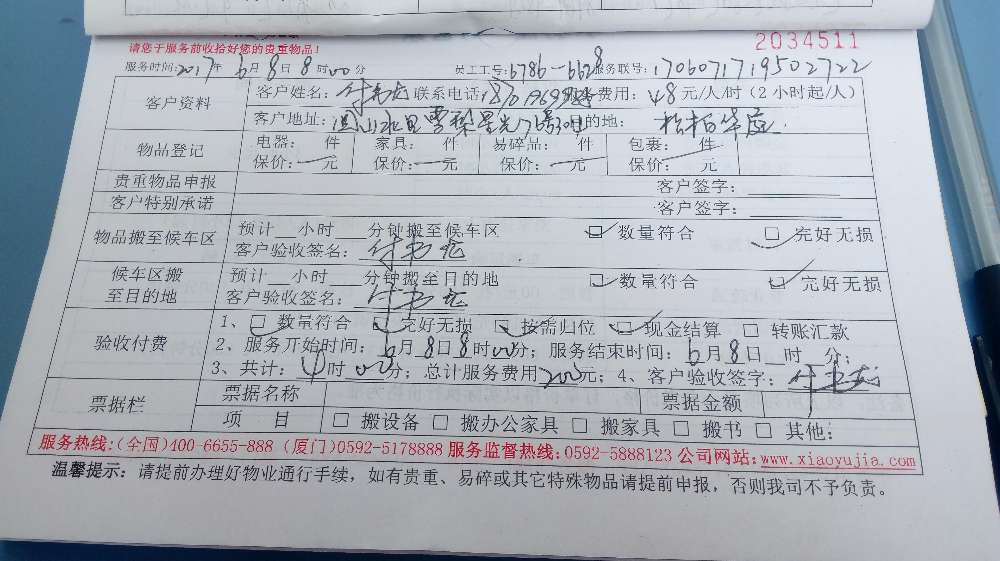 请您于服务前收拾好您的贵重物品！ 2034511
服务时间：2017年6月8日8时00分 员工工号：6786-6628 服务联号：1706071719502722
客户资料 客户姓名： 联系电话： 服务费用：48元/人/时（2小时起/人）
客户地址： 目的地：松柏华庭
物品登记 电器： 件 家具： 件 易碎品： 件 包裹： 件
保价： 元 保价： 元 保价： 元 保价： 元
贵重物品申报 客户签字：
客户特别承诺 客户签字：
物品搬至候车区 预计 小时 分钟搬至候车区 数量符合 完好无损
客户验收签名：
候车区搬至目的地 预计 小时 分钟搬至目的地 数量符合 完好无损
客户验收签名：
验收付费 1、 数量符合 完好无损 按需归位 现金结算 转账汇款
2、服务开始时间：6月8日8时00分；服务结束时间：6月8日 时 分；
3、共计：4时00分；总计服务费用200元；4、客户验收签字：
票据栏 票据名称 票据金额
项 目 搬设备 搬办公家具 搬家具 搬书 其他：
服务热线：(全国)400-6655-888 (厦门)0592-5178888 服务监督热线：0592-5888123 公司网站：www.xiaoyujia.com
温馨提示：请提前办理好物业通行手续，如有贵重、易碎或其它特殊物品请提前申报，否则我司不予负责。